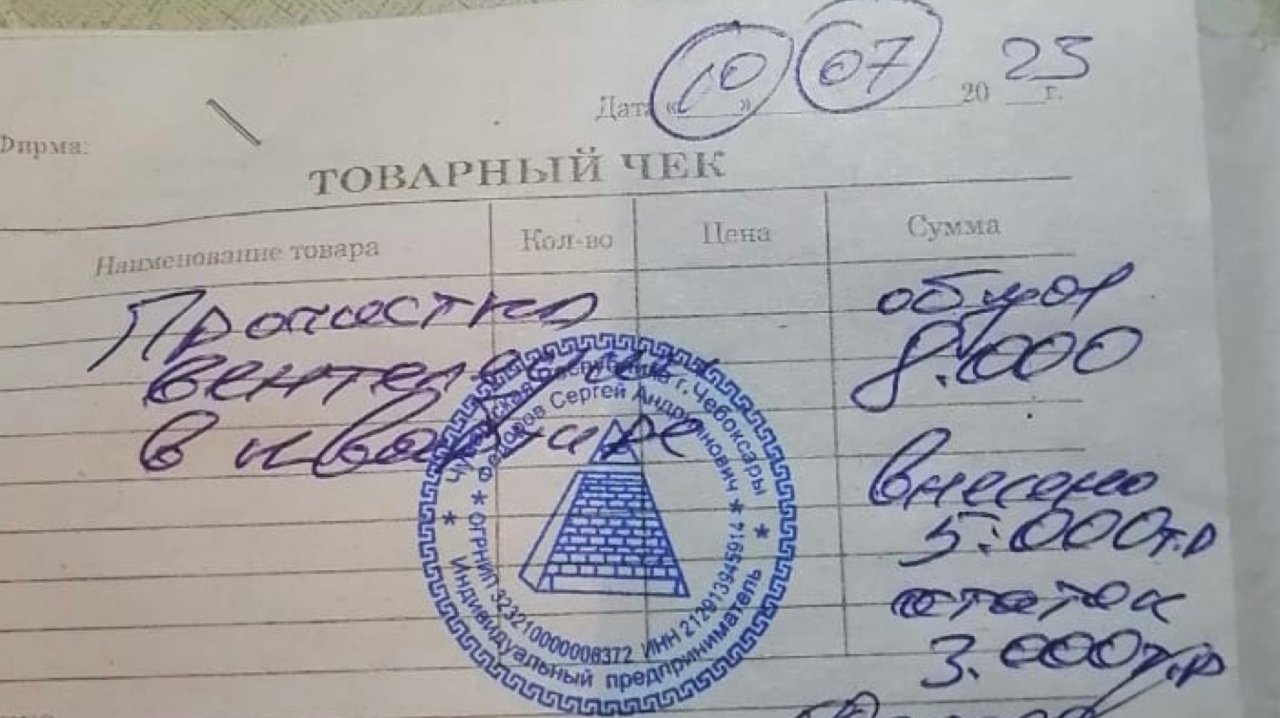 Дата « 10 » 07 20 23 г.
Фирма:
ТОВАРНЫЙ ЧЕК
Наименование товара Кол-во Цена Сумма
Прочистка общая
вентеляции 8.000
в квартире
внесено
5.000 т.р
остаток
3.000 т.р
Чувашская Республика г. Чебоксары
* Федоров Сергей Андриянович *
* ОГРНИП 323210000006372 ИНН 212913945914 *
Индивидуальный предприниматель